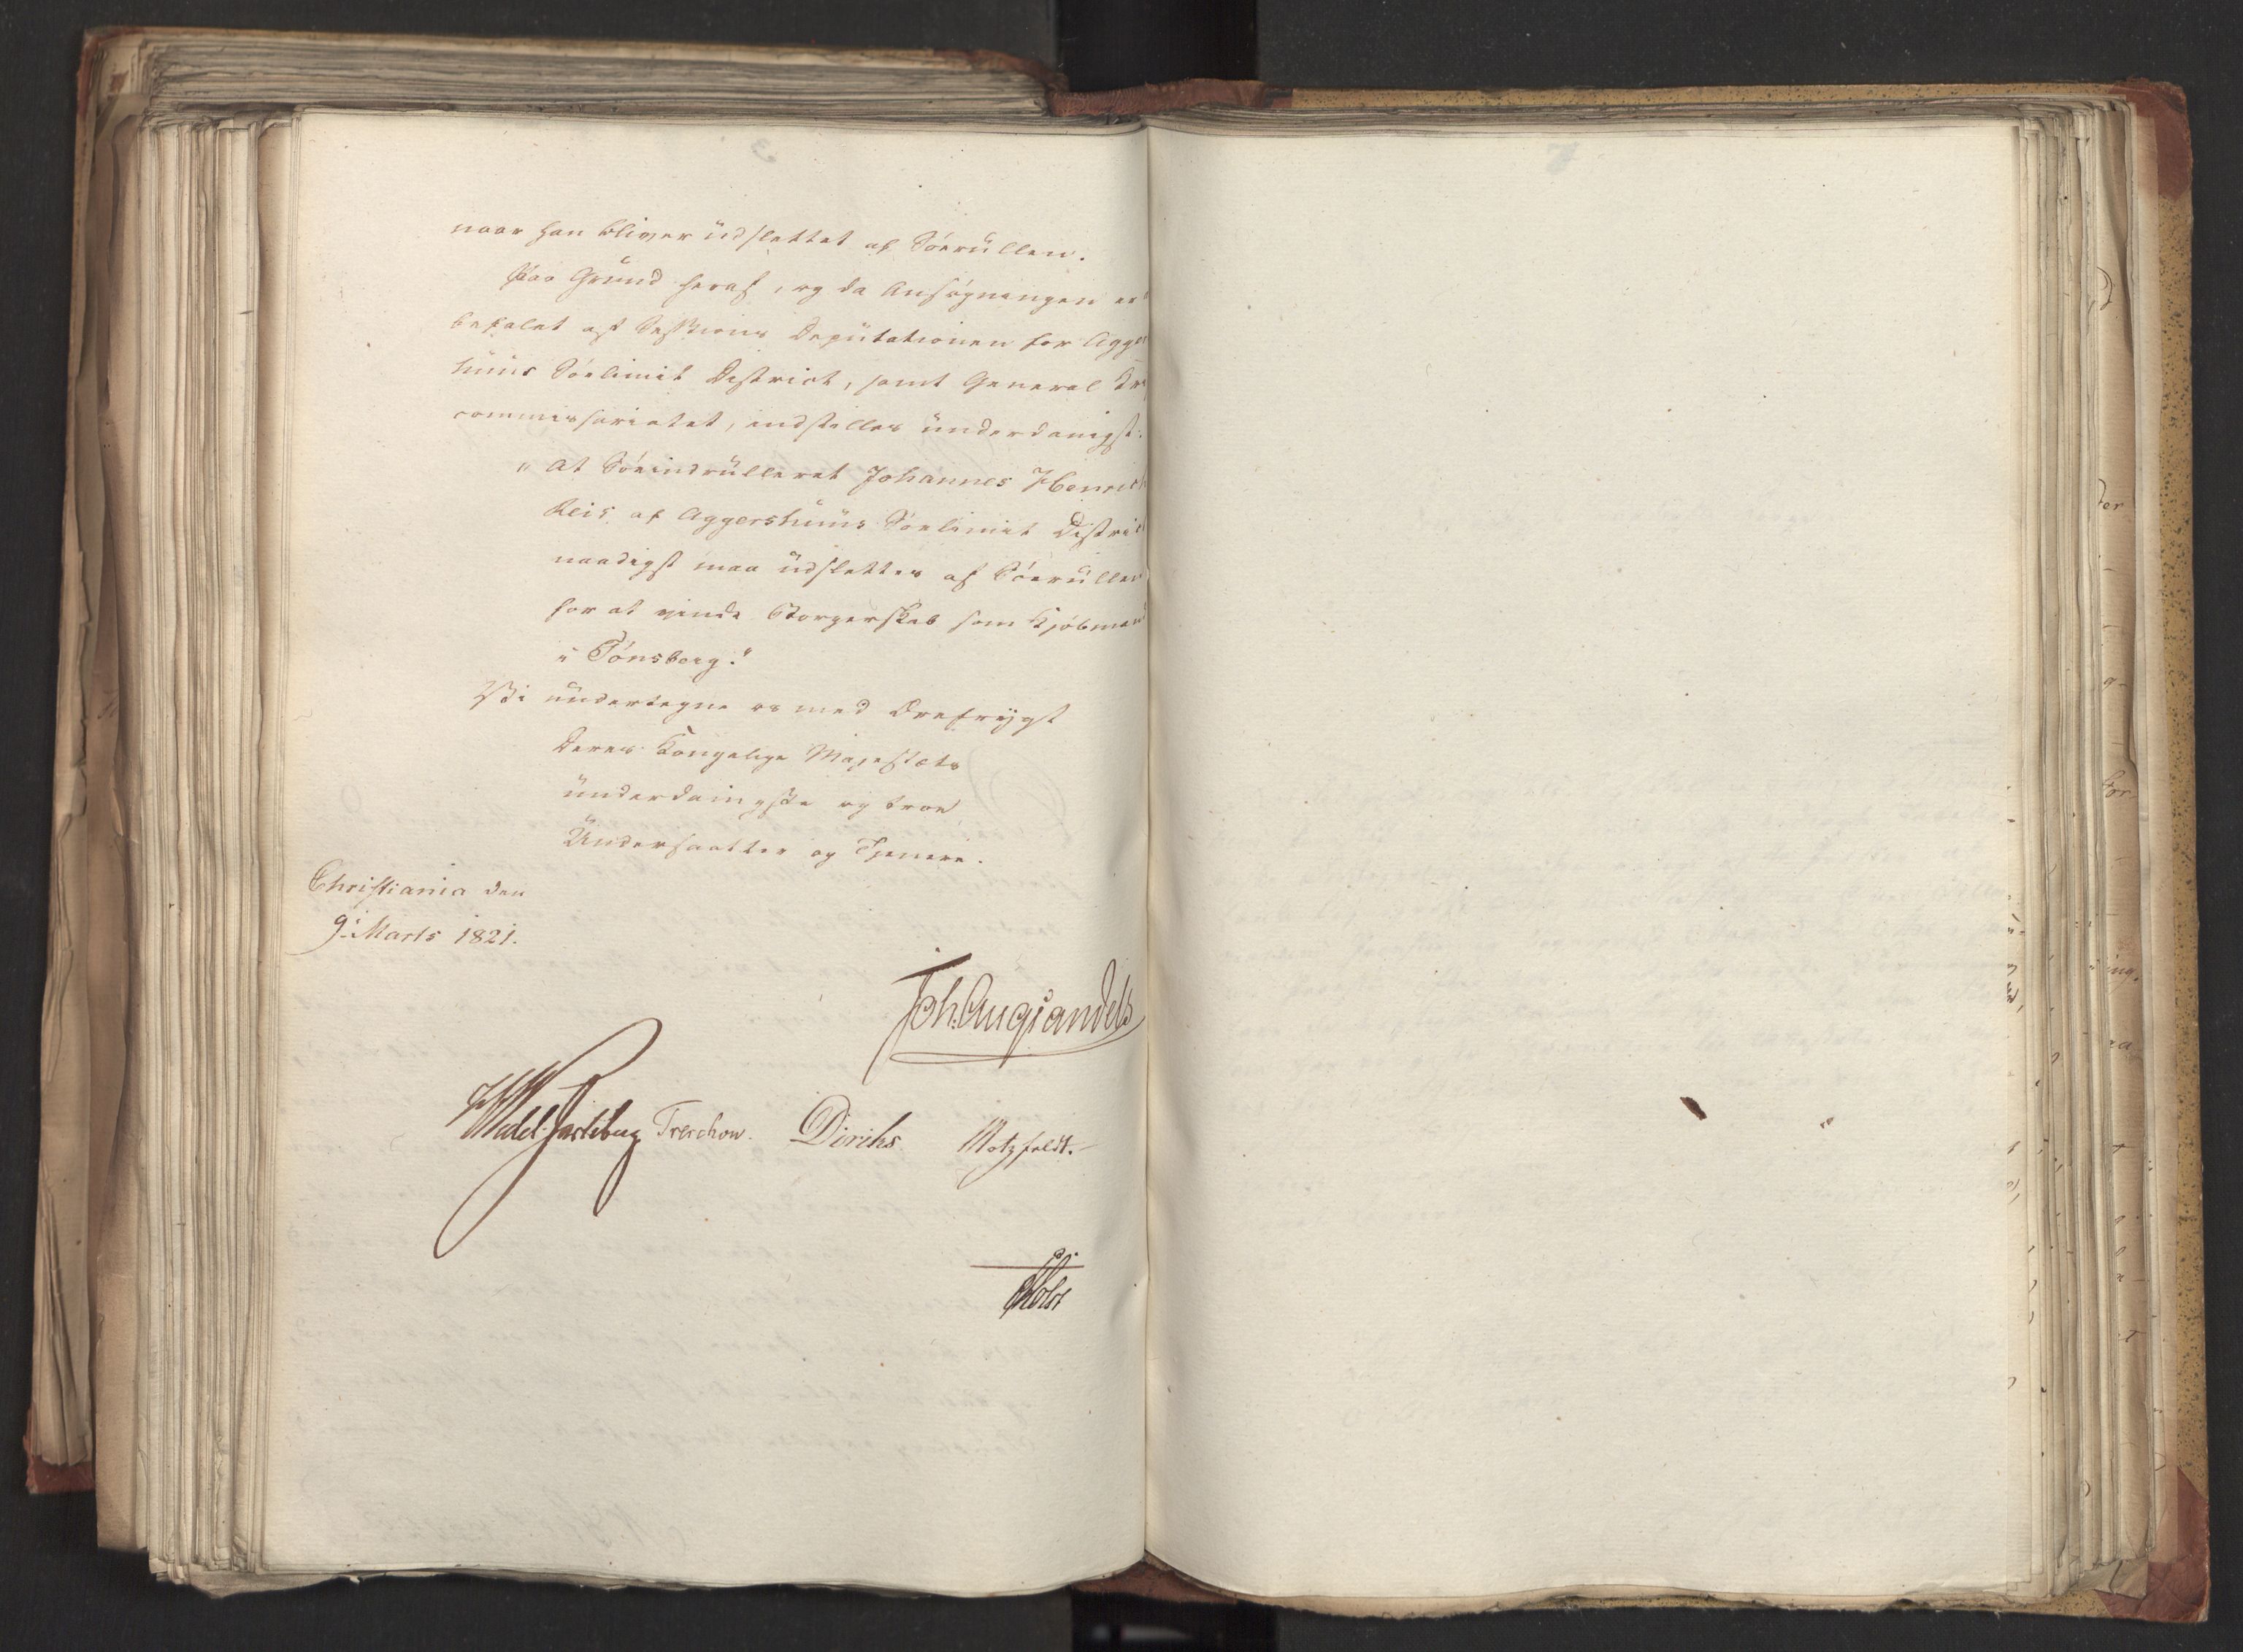 naar han bliver udslettet af Søerullen.
Paa Grund heraf, og da Ansøgningen er
befalet af Sessions Deputationen for Agger
huus Søelimit District, samt General Kr
commissariatet, indstilles underdanigst:
"At Søeindrulleret Johannes Henrich
Reis af Aggershuus Søelimit District
naadigst maa udslettes af Søerullen
for at vinde Borgerskab som Kjøbmand
i Tønsberg."
Vi undertegne os med Ærefrygt
Deres Kongelige Majestæts
underdanigste og troe
Undersaatter og Tjenere.
Christiania den
9. Marts 1821.
Joh. Aug Sandels
HWedel Jarlsberg Treschow. Diriks Motzfeldt.
Holst